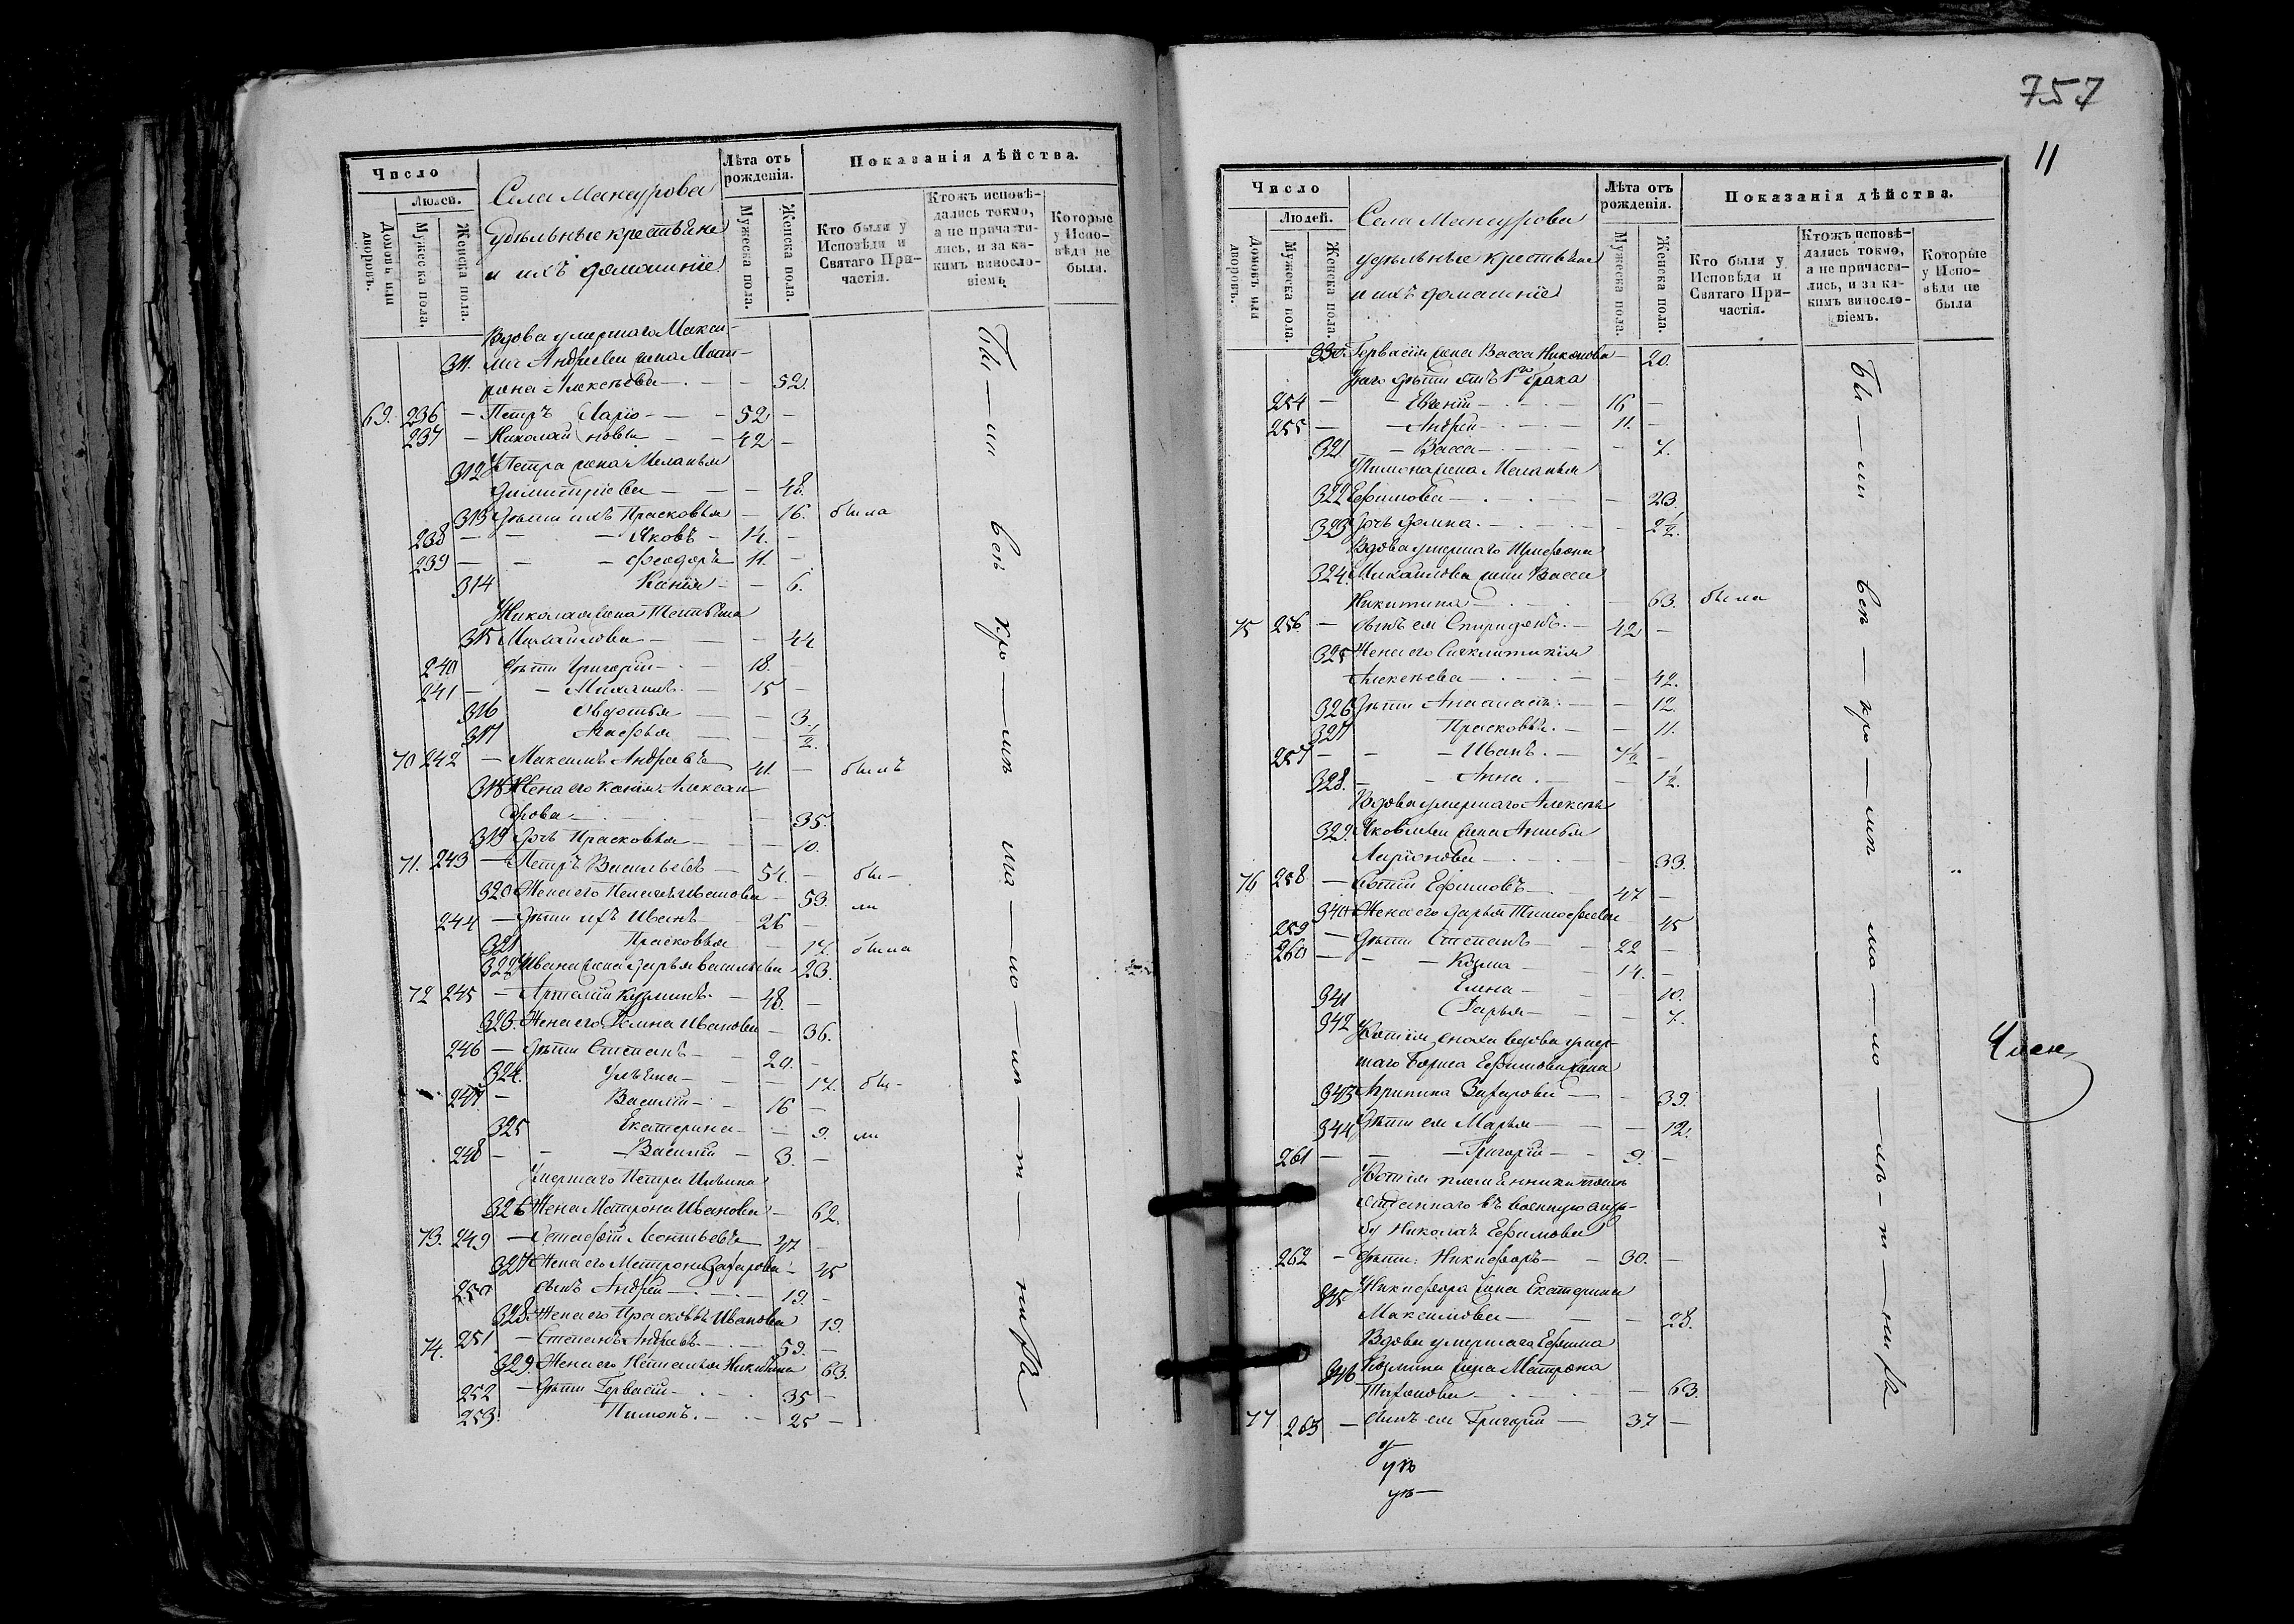 Число
Людей.
Домовъ или дворовъ.
Мужеска пола.
Женска пола.
Села Мансурова
удѣльные крестьяне
и ихъ домашніе
Лѣта отъ рожденія.
Мужеска пола.
Женска пола.
Показанія дѣйства.
Кто были у Исповѣди и Святаго Причастія.
Ктожъ исповѣдались токмо, а не причастились, и за какимъ винословіемъ
Которые у Исповѣди не были.
Вдова умершаго Макси-
311. ма Андреева жена Мат-
рона Алексѣева — — 52
69. 236 — Петръ Ларіо- — 52 —
237 — Николай новы — 42 —
У Петра жена Меланья
312 Димитріева — — 48.
313 Дѣти ихъ Прасковья — 16. была
238 — — Яковъ — 14. —
239 — — Ѳеодоръ 11. —
314 Ксенія — — 6.
У Николая жена Татьяна
315 Михайлова — — 44
240 Дѣти Григорій — 18. —
241 — — Михаилъ — 15 —
316 Авдотья — — 3.
317 Марѳа — — 1/2.
70 242 — Максимъ Андреевъ 41. — былъ
318 Жена его Ксенія Алексан-
дрова — — 35.
319 Дочь Прасковья — — 10.
71. 243 — Петръ Васильевъ — 54. — бы-
320 Жена его Пелагія Иванова — 53. ли
244 — Дѣти ихъ Иванъ — 26 —
321 Прасковья — 17. была
322 У Ивана жена Дарья Васильева 23.
72 245 — Артемій Кузминъ — 48. —
323. Жена его Домна Иванова — 36.
246 — Дѣти Степанъ — 20. —
324. Ульяна — — 17. бы-
247. — Василій — 16 —
325 Екатерина — — 9. ли
248 — — Василій — 3. —
Умершаго Петра Ильина
326 Жена Матрона Иванова — 62.
73. 249 — Евстафій Леонтьевъ 47 —
327 Жена его Матрона Захарова — 45
250 сынъ Андрей — 19. —
328. Жена его Прасковья Иванова 19.
74. 251 — Степанъ Андреевъ — 59. —
329. Жена его Наталья Никитина 63.
252 — Дѣти Гервасій — 35 —
253. Пимонъ — 25 —
Бы — ли всѣ кро — мѣ ма — ло — лѣ — т — нихъ
757
11
Число
Людей.
Домовъ или дворовъ.
Мужеска пола.
Женска пола.
Села Мансурова
удѣльные крестьяне
и ихъ домашніе
Лѣта отъ рожденія.
Мужеска пола.
Женска пола.
Показанія дѣйства.
Кто были у Исповѣди и Святаго Причастія.
Ктожъ исповѣдались токмо, а не причастились, и за какимъ винословіемъ.
Которые у Исповѣди не были
330. Гервасія жена Васса Никонова — 20.
У него дѣти отъ 1го брака
254 — — Евгеній — 16 —
255 — — Андрей — 11. —
321 — Васса — — 7.
У Пимона жена Меланья
322 Ефимова — — 23.
323 Дочь Домна. — — 2 1/2.
Вдова умершаго Трифона
324. Михайлова жена Васса
Никитина — — 63. была
75 256. — сынъ ея Спиридонъ. — 42 —
325 Жена его Синклитикія
Алексѣева — — 42.
326 Дѣти Анастасія — — 12.
327 Прасковья. — — 11.
257 — — Иванъ. — 7 1/2 —
328. — — Анна. — — 1 1/2.
Вдова умершаго Алексѣя
329. Яковлева жена Анисья
Ларіонова — — 33.
76 258 — Фотій Ефимовъ — 47 —
340 Жена его Дарья Тимофеева 45
259 — Дѣти Степанъ — 22 —
260 — — Козма — 14. —
341 Елена — — 10.
342 Дарья — — 7.
У Фотія сноха вдова умер-
шаго Бориса Ефимова жена
343 Агрипина Захарова — — 39.
344 Дѣти ея Марья — — 12.
261 — — Григорій — 9. —
У Фотія племянники
отданнаго въ военную служ-
бу Николая Ефимова
262 — Дѣти: Никифоръ — 30. —
У Никифора жена Екатерина
345 Максимова — — 28.
Вдова умершаго Ефима
346 Козмина жена Матрона
Тихонова — — 63.
77 263 — сынъ ея Григорій — 37 —
Бы — ли всѣ — кро — мѣ ма — ло — лѣ — т — нихъ